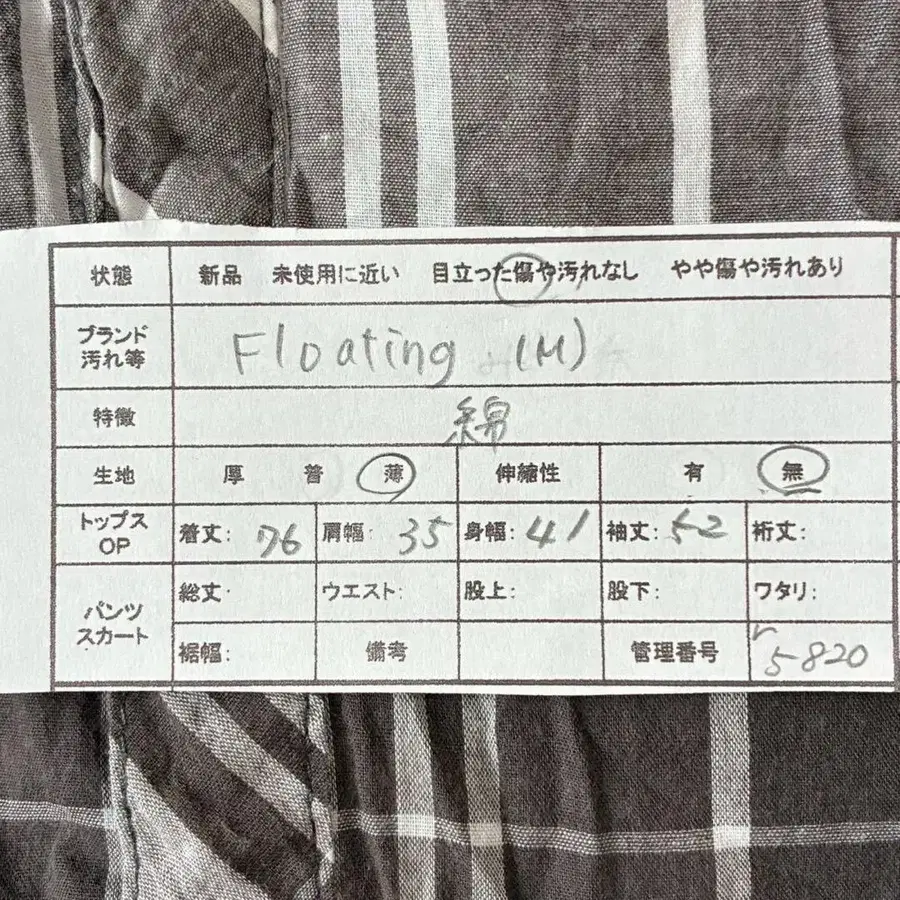 状態 新品 未使用に近い 目立った傷や汚れなし やや傷や汚れあり
ブランド
汚れ等 Floating (M)
特徴 綿
生地 厚 普 薄 伸縮性 有 無
トップス
OP 着丈: 76 肩幅: 35 身幅: 41 袖丈: 52 裄丈:
パンツ
スカート 総丈: ウエスト: 股上: 股下: ワタリ:
裾幅: 備考 管理番号 r5820